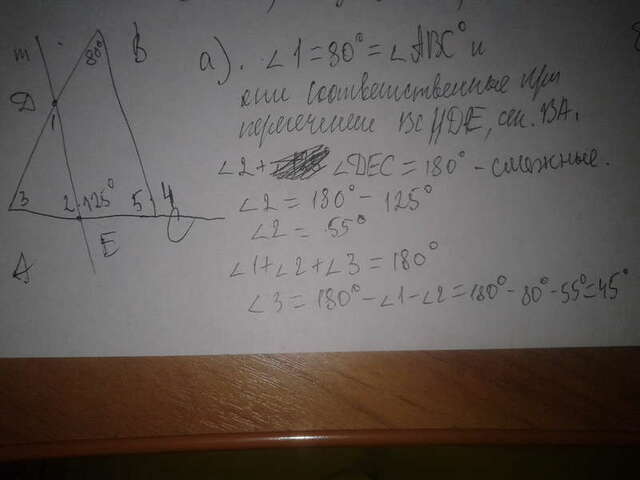 m
B
80°
D
1
3
2
125°
5
4
E
A
а). ∠1=80°=∠ABC° и
они соответственные при
пересечении BC||DE, сек. BA.
∠2+ ∠DEC = 180° - смежные.
∠2 = 180° - 125°
∠2 = 55°
∠1+∠2+∠3 = 180°
∠3 = 180° - ∠1 - ∠2 = 180° - 80° - 55° = 45°